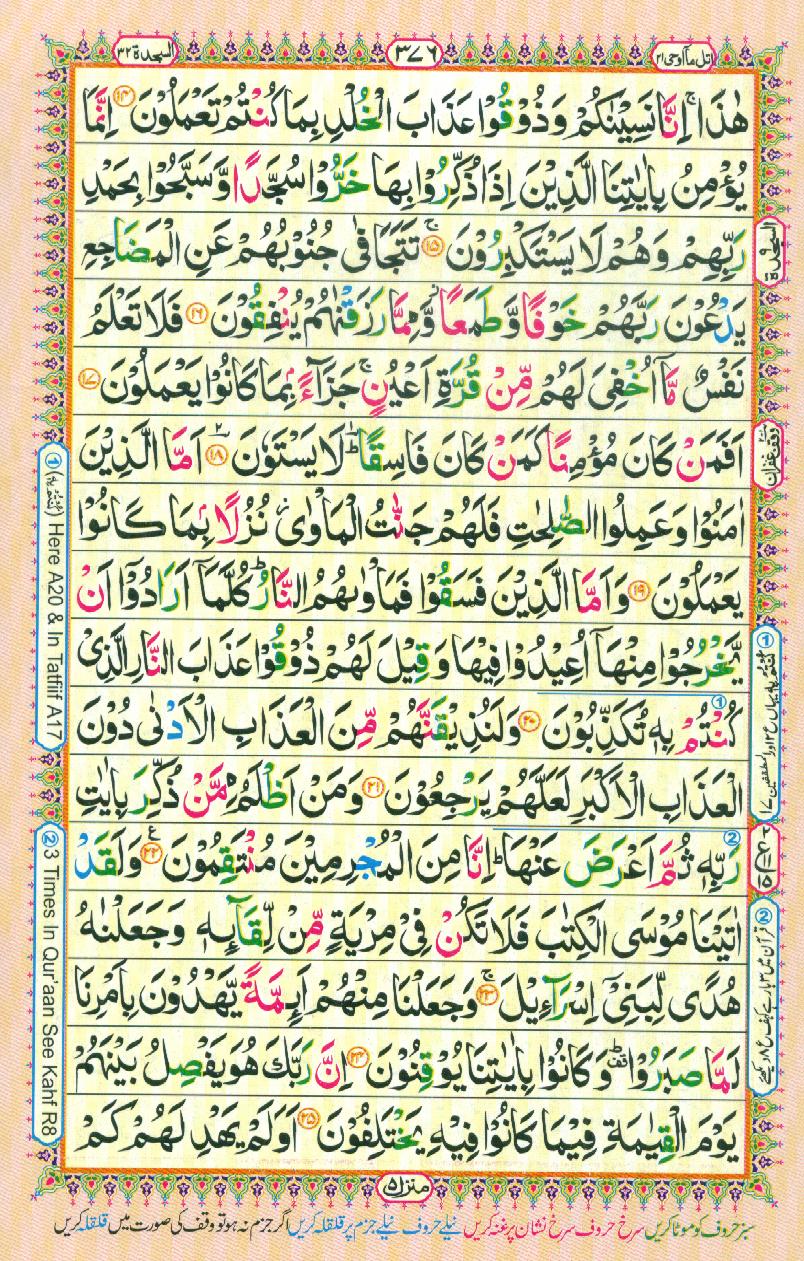 اتل ما اوحی ۲۱
۳۷۶
السجدة ۳۲
هٰذَا ۚ اِنَّا نَسِیْنٰكُمْ وَ ذُوْقُوْا عَذَابَ الْخُلْدِ بِمَا كُنْتُمْ تَعْمَلُوْنَ ۝۱۴ اِنَّمَا
یُؤْمِنُ بِاٰیٰتِنَا الَّذِیْنَ اِذَا ذُكِّرُوْا بِهَا خَرُّوْا سُجَّدًا وَّ سَبَّحُوْا بِحَمْدِ
رَبِّهِمْ وَ هُمْ لَا یَسْتَكْبِرُوْنَ ۝۱۵ تَتَجَافٰی جُنُوْبُهُمْ عَنِ الْمَضَاجِعِ
یَدْعُوْنَ رَبَّهُمْ خَوْفًا وَّ طَمَعًا ز وَّ مِمَّا رَزَقْنٰهُمْ یُنْفِقُوْنَ ۝۱۶ فَلَا تَعْلَمُ
نَفْسٌ مَّاۤ اُخْفِیَ لَهُمْ مِّنْ قُرَّةِ اَعْیُنٍ ۚ جَزَآءًۢ بِمَا كَانُوْا یَعْمَلُوْنَ ۝۱۷
اَفَمَنْ كَانَ مُؤْمِنًا كَمَنْ كَانَ فَاسِقًا ؕ لَا یَسْتَوٗنَ ۝۱۸ اَمَّا الَّذِیْنَ
اٰمَنُوْا وَ عَمِلُوا الصّٰلِحٰتِ فَلَهُمْ جَنّٰتُ الْمَاْوٰی ز نُزُلًۢا بِمَا كَانُوْا
یَعْمَلُوْنَ ۝۱۹ وَ اَمَّا الَّذِیْنَ فَسَقُوْا فَمَاْوٰىهُمُ النَّارُ ؕ كُلَّمَاۤ اَرَادُوْۤا اَنْ
یَّخْرُجُوْا مِنْهَاۤ اُعِیْدُوْا فِیْهَا وَ قِیْلَ لَهُمْ ذُوْقُوْا عَذَابَ النَّارِ الَّذِیْ
كُنْتُمْ بِهٖ تُكَذِّبُوْنَ ۝۲۰ وَ لَنُذِیْقَنَّهُمْ مِّنَ الْعَذَابِ الْاَدْنٰی دُوْنَ
الْعَذَابِ الْاَكْبَرِ لَعَلَّهُمْ یَرْجِعُوْنَ ۝۲۱ وَ مَنْ اَظْلَمُ مِمَّنْ ذُكِّرَ بِاٰیٰتِ
رَبِّهٖ ثُمَّ اَعْرَضَ عَنْهَا ؕ اِنَّا مِنَ الْمُجْرِمِیْنَ مُنْتَقِمُوْنَ ۝۲۲ وَ لَقَدْ
اٰتَیْنَا مُوْسَی الْكِتٰبَ فَلَا تَكُنْ فِیْ مِرْیَةٍ مِّنْ لِّقَآىِٕهٖ وَ جَعَلْنٰهُ
هُدًی لِّبَنِیْۤ اِسْرَآءِیْلَ ۝۲۳ وَ جَعَلْنَا مِنْهُمْ اَىِٕمَّةً یَّهْدُوْنَ بِاَمْرِنَا
لَمَّا صَبَرُوْا ؕ قف وَ كَانُوْا بِاٰیٰتِنَا یُوْقِنُوْنَ ۝۲۴ اِنَّ رَبَّكَ هُوَ یَفْصِلُ بَیْنَهُمْ
یَوْمَ الْقِیٰمَةِ فِیْمَا كَانُوْا فِیْهِ یَخْتَلِفُوْنَ ۝۲۵ اَوَ لَمْ یَهْدِ لَهُمْ كَمْ
السجدة
وقف غفران
① كنتم به یہاں ع۲ اور المطففین ۱۷
② قرآن میں ۳ بار ہے کہف ع۸ دیکھئے
① (كنتم به) Here A20 & In Tatfiif A17
② 3 Times In Qur'aan See Kahf R8
منزل ۵
سبز حروف کو موٹا کریں سرخ حروف سرخ نشان پر غنہ کریں نیلے حروف نیلے جزم پر قلقلہ کریں اگر جزم نہ ہو تو وقف کی صورت میں قلقلہ کریں